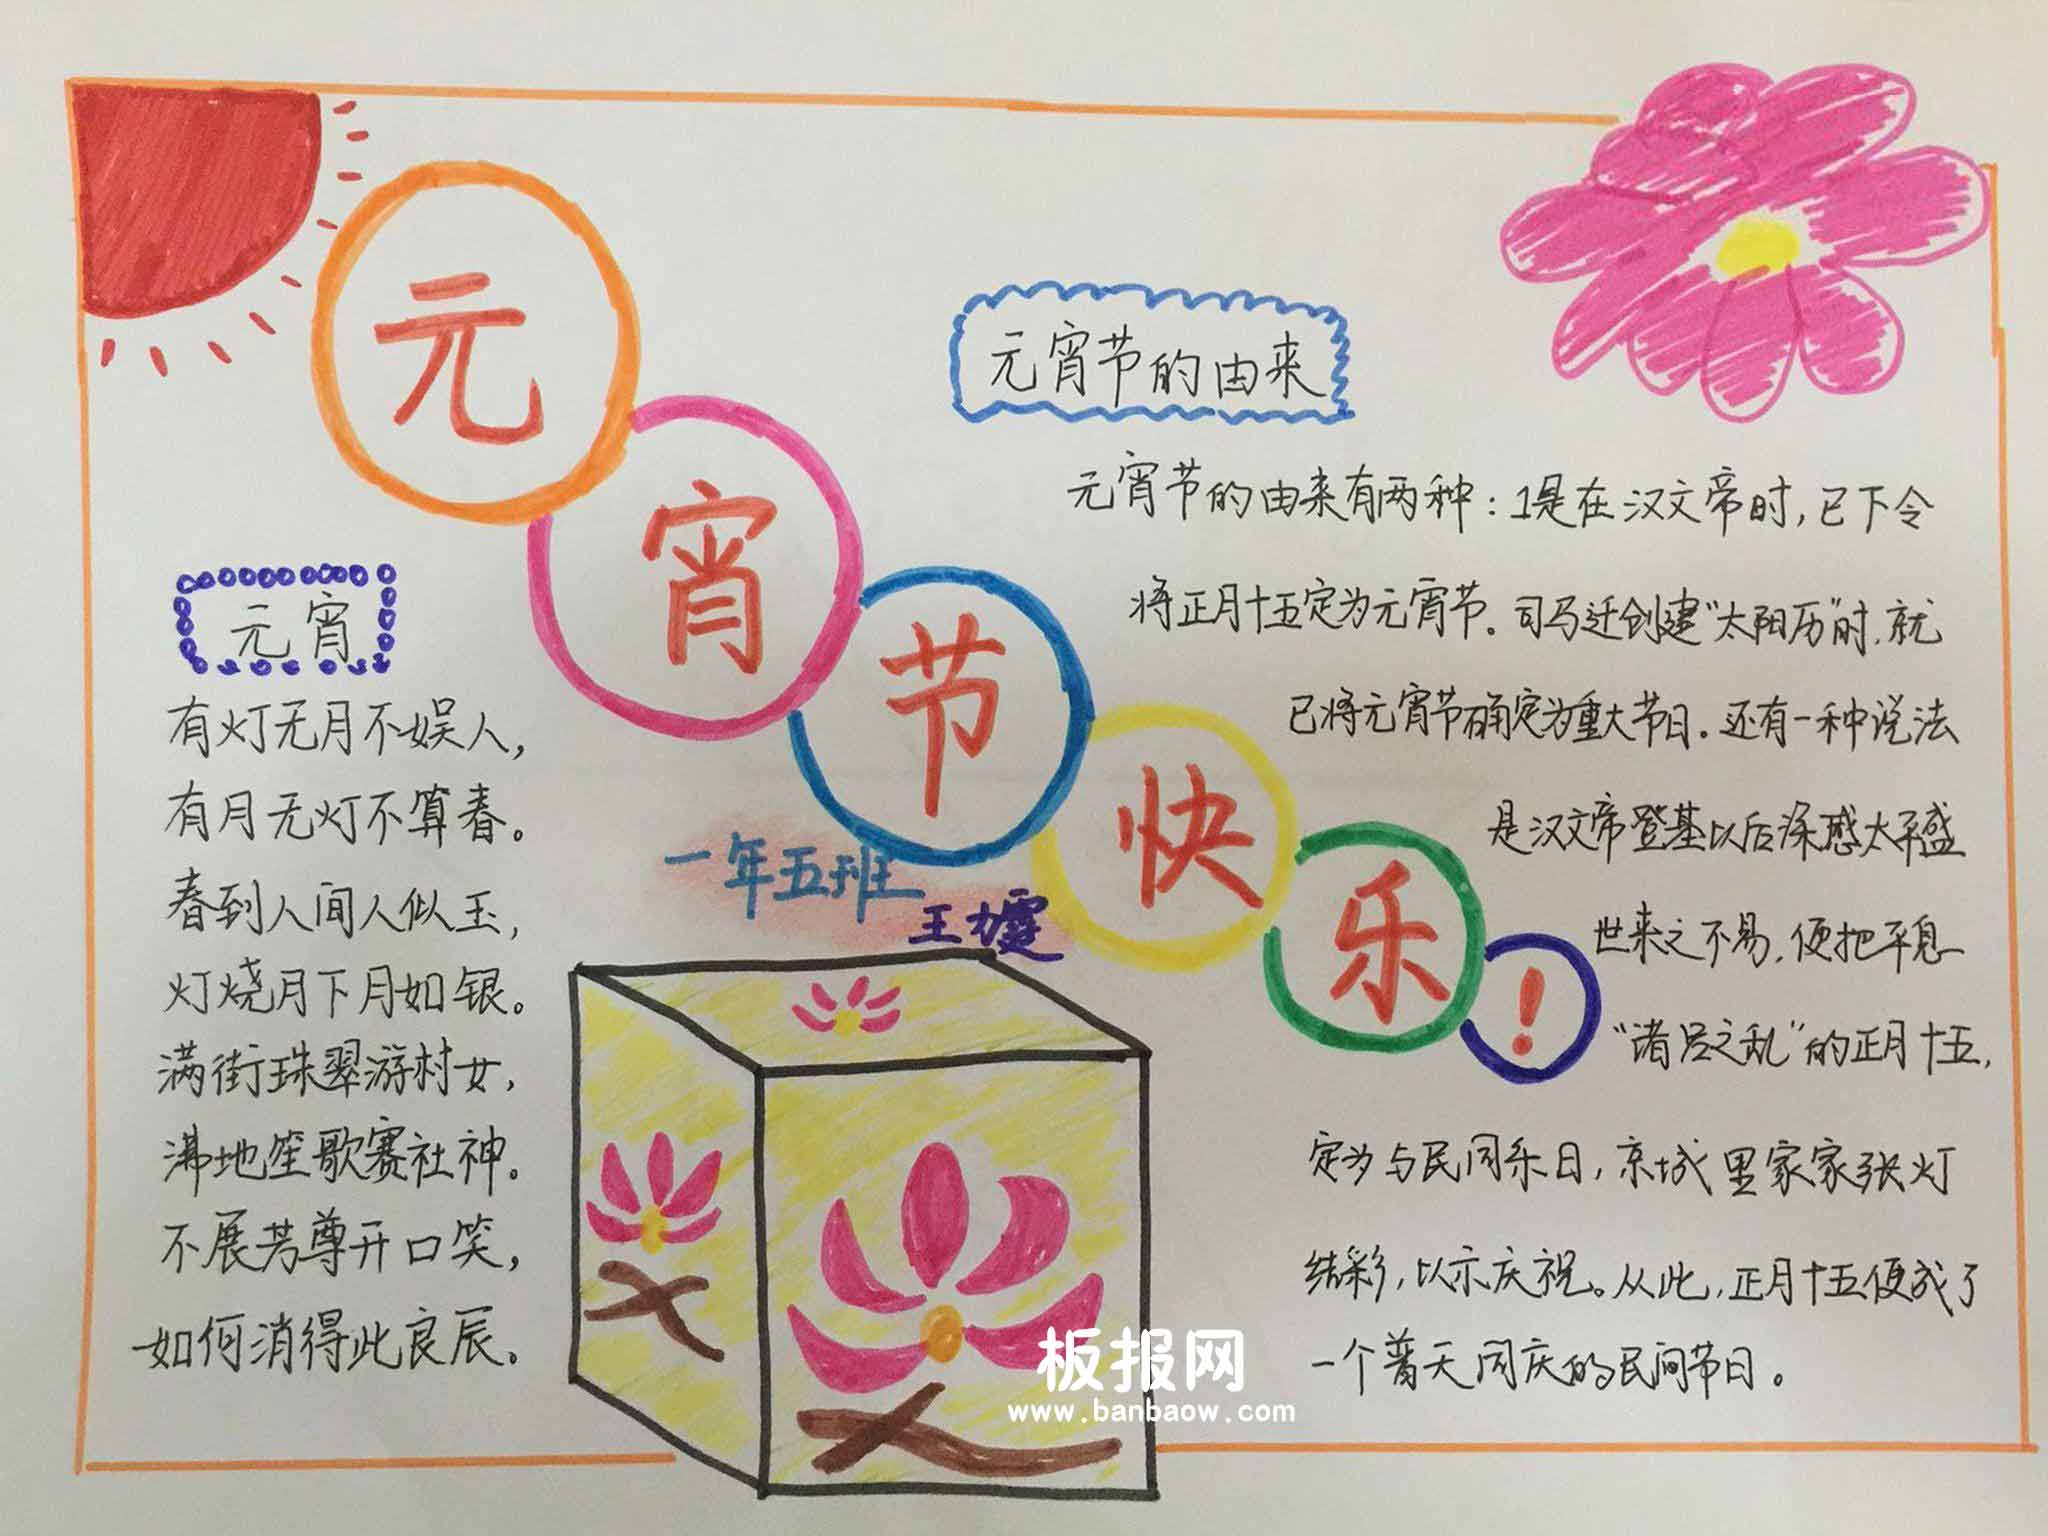 元宵节快乐！
一年五班
元宵
有灯无月不娱人，
有月无灯不算春。
春到人间人似玉，
灯烧月下月如银。
满街珠翠游村女，
沸地笙歌赛社神。
不展芳尊开口笑，
如何消得此良辰。
元宵节的由来
元宵节的由来有两种：1是在汉文帝时，已下令
将正月十五定为元宵节。司马迁创建“太阳历”时，就
已将元宵节确定为重大节日。还有一种说法
是汉文帝登基以后深感太平盛
世来之不易，便把平息
“诸吕之乱”的正月十五，
定为与民同乐日，京城里家家张灯
结彩，以示庆祝。从此，正月十五便成了
一个普天同庆的民间节日。
板报网
www.banbaow.com